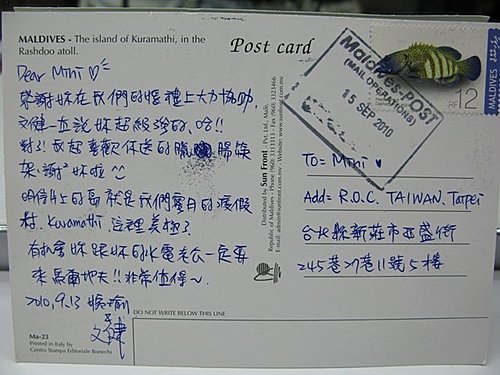 MALDIVES - The island of Kuramathi, in the
Rashdoo atoll.
Post card
Dear Mini ♡
感謝妹在我們的婚禮上大力協助,
文健一直說妹超級強的,哈!!
對了!我超喜歡你送的
架,謝謝妹啦~
明信片上的島就是我們蜜月的渡假
村, Kuramathi 這裡美極了
有機會妹跟妹的北電老公一定要
來馬爾地夫!!非常值得~
2010, 9.13
文健
Ma-23
Printed in Italy by
Centro Stampa Editoriale Bonechi
DO NOT WRITE BELOW THIS LINE
Distributed by Sun Front - Pvt. Ltd., Malé,
Republic of Maldives - Phone (960) 3313313 - Fax (960) 3323466
Maldives-POST
(MAIL OPERATIONS)
15 SEP 2010
MALDIVES
RF 12
To= Mini ♥
Add= R.O.C. TAIWAN. Taipei
台北縣新莊市五盛街
245巷27巷11號5樓